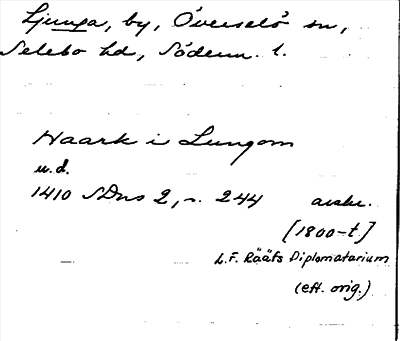 Ljunga, by, Överselö sn,
Selebo hd, Söderm. l.
Haark i Lungom
u.d.
1410 SDns 2, s. 244 avskr.
[1800-t.]
L.F. Rääfs Diplomatarium
(eft. orig.)